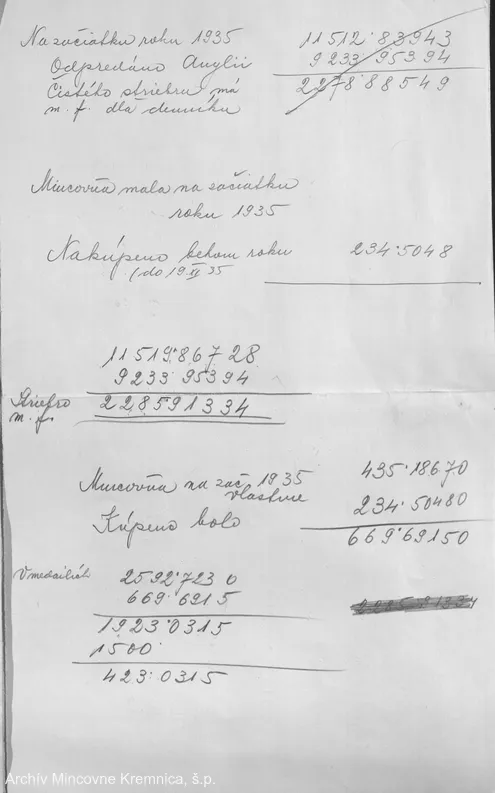 Na začiatku roku 1935 11512·83943
Odpredáno Anglii 9233·95394
Čistého striebra má 2278·88549
m. f. dľa denníku
Mincovňa mala na začiatku
roku 1935
Nakúpeno behom roku 234·5048
(do 19/XI 35
11519·86728
9233·95394
Striebro 228591334
m. f.
Mincovňa na zač. 1935 435·18670
vlastne
Kúpeno bolo 234·50480
669·69150
V medailích 2592·7230
669·6915
1923·0315
1500·
423·0315
Archív Mincovne Kremnica, š.p.